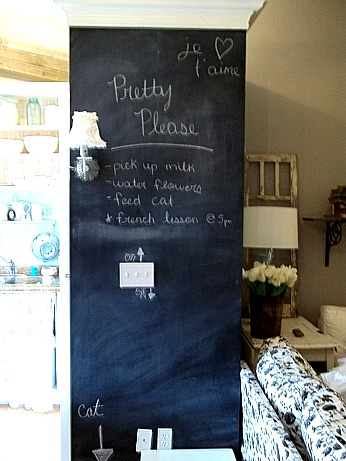 je ♡
t'aime
Pretty
Please
- pick up milk
- water flowers
- feed cat
* french lesson @ 5pm
on ↑
off ↓
cat